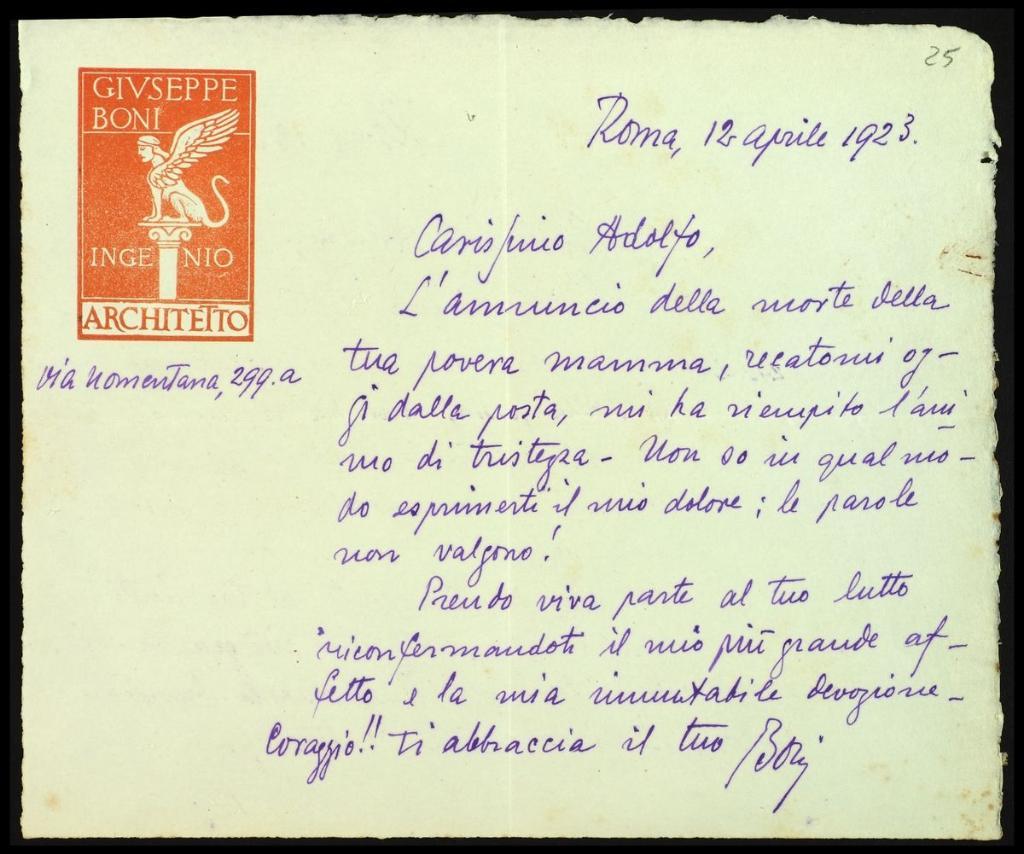 25
GIVSEPPE
BONI
INGENIO
ARCHITETTO
Via Nomentana, 299.a
Roma, 12 aprile 1923.
Carissimo Adolfo,
L'annuncio della morte della
tua povera mamma, recatomi og-
gi dalla posta, mi ha riempito l'ani
mo di tristezza - Non so in qual mo-
do esprimerti il mio dolore; le parole
non valgono!
Prendo viva parte al tuo lutto
riconfermandoti il mio più grande af-
fetto e la mia immutabile devozione -
Coraggio!! Ti abbraccia il tuo Boni